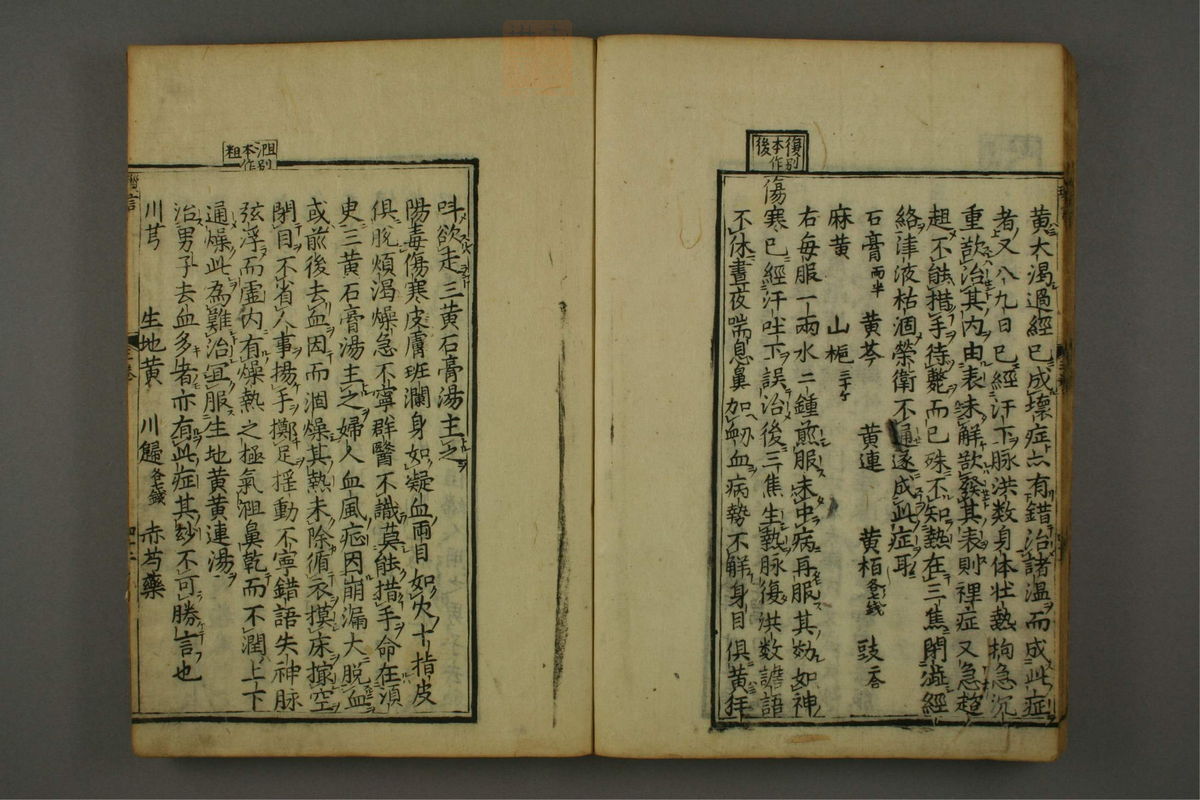 復別
本作
後
黄大渇過經已成壊症亦有錯治諸温而成此症
者又八九日已經汗下脉洪数身体壮熱拘急沉
重欲治其内由表未解欲發其表則裡症又急趑
趄不能措手待斃而已殊不知熱在三焦閉澁經
絡津液枯涸榮衛不通遂成此症耳
石膏両半 黄芩 黄連 黄栢各七錢 豉二合
麻黄 山梔三十ケ
右毎服一兩水二鍾煎服未中病再服其効如神
傷寒已經汗吐下誤治後三焦生熱脉復洪数譫語
不休晝夜喘息鼻加衂血病勢不觧身目俱黄狂
沮別
本作
粗
叫欲走三黄石膏湯主之
陽毒傷寒皮膚班瀾身如凝血兩目如火十指皮
俱脱煩渇燥急不寧群醫不識莫能措手命在湏
臾三黄石膏湯主之婦人血風症因崩漏大脱血
或前後去血因而涸燥其熱未除循衣摸床撮空
閉目不省人事揚手擲足揺動不寧錯語失神脉
弦浮而虚内有燥熱之極氣粗鼻乾而不潤上下
通燥此為難治宜服生地黄黄連湯
治男子去血多者亦有此症其玅不可勝言也
川芎 生地黄 川歸各七錢 赤芍藥